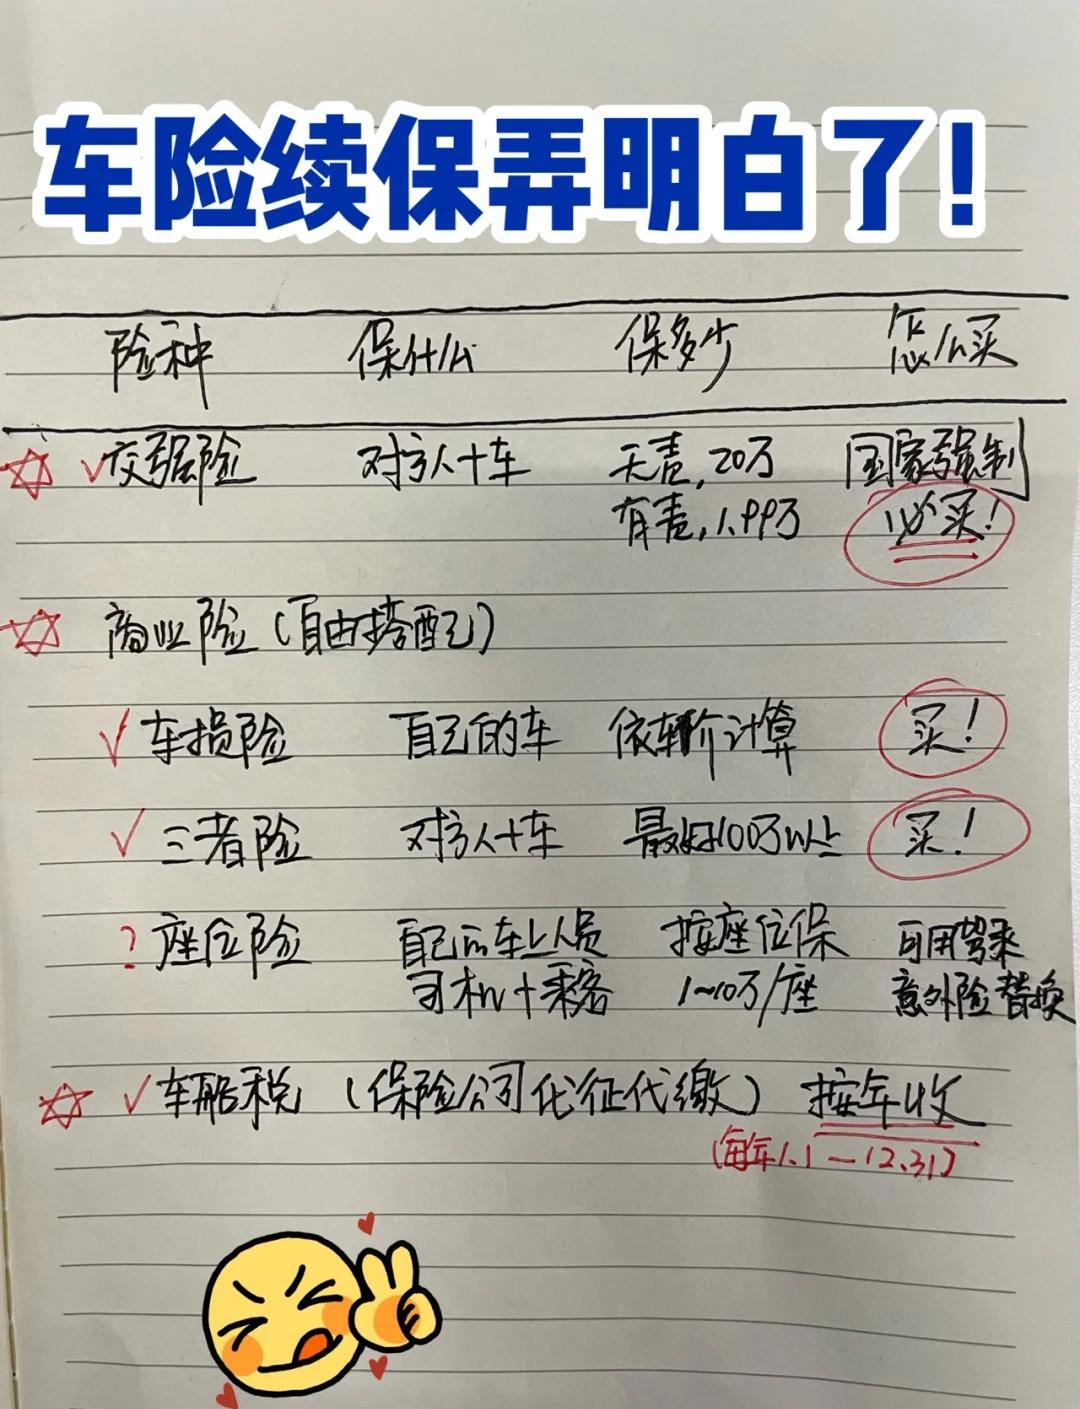 车险续保弄明白了!
险种 保什么 保多少 怎么买
交强险 对方人+车 无责,20万 国家强制
有责,1.99万 必买!
商业险(自由搭配)
车损险 自己的车 依车价计算 买!
三者险 对方人+车 最好100万以上 买!
?座位险 自己的车上人员 按座位保 可用驾乘
司机+乘客 1~10万/座 意外险替换
车船税(保险公司代征代缴) 按年收
(每年1.1—12.31)